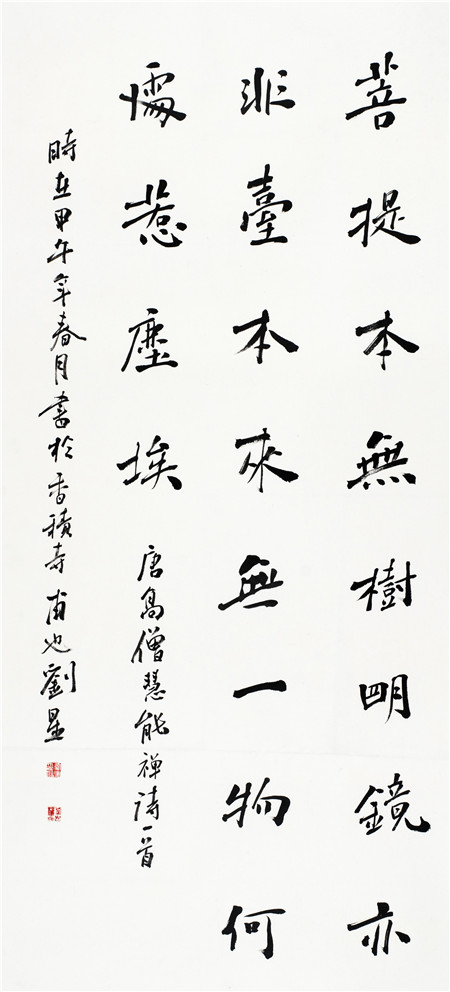 菩提本無樹明鏡亦
非臺本來無一物何
懦惹塵埃 唐高僧慧能禅詩一首
時在甲午年春月書於香積寺甫也劉星